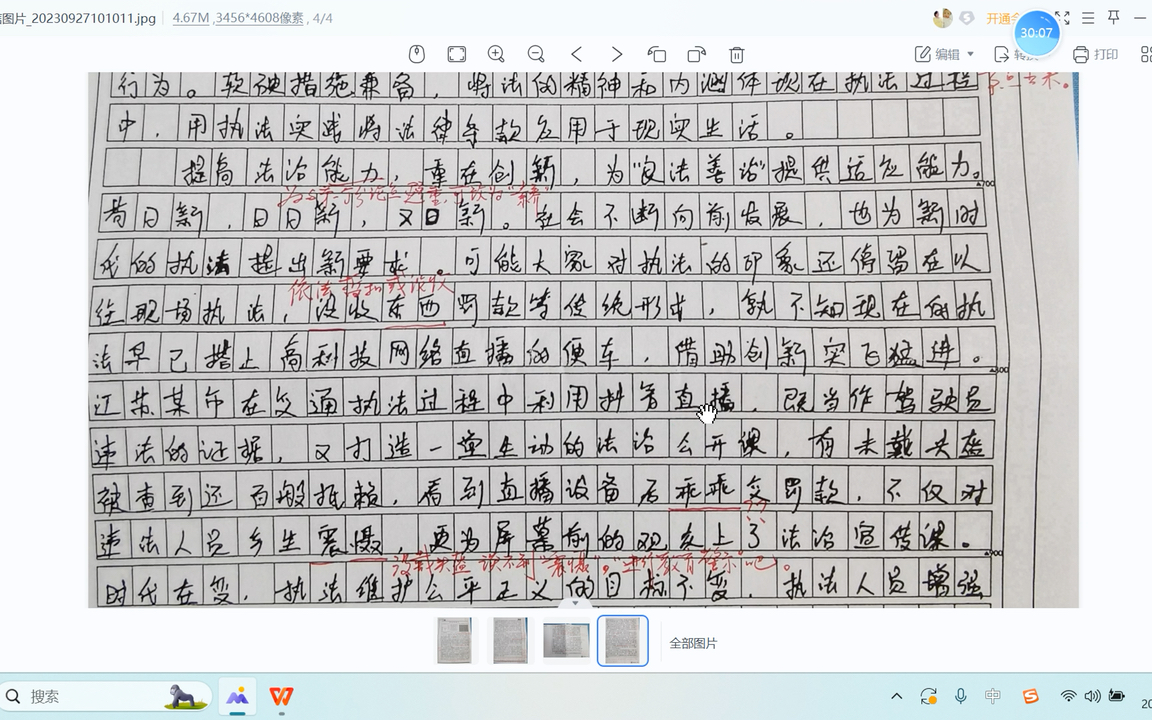 图片_20230927101011.jpg
4.67M ,3456*4608像素 , 4/4
开通会
30:07
编辑
转换
打印
行为。软硬措施兼备，将法的精神和内涵体现在执法过程
中，用执法实践将法律条款应用于现实生活。
提高法治能力，重在创新，为"良法善治"提供适应能力。
700
苟日新，日日新，又日新。社会不断向前发展，也为新时
代的执法提出新要求。可能大家对执法的印象还停留在以
依法暂扣或没收
往现场执法，没收东西罚款等传统形式，孰不知现在的执
法早已搭上高科技网络直播的便车，借助创新突飞猛进。
800
江苏某市在交通执法过程中利用抖音直播，既当作驾驶员
违法的证据，又打造一堂生动的法治公开课，有未戴头盔
被查到还百般抵赖，看到直播设备后乖乖交罚款，不仅对
??
违法人员产生震慑，更为屏幕前的观众上了法治宣传课。
900
没戴头盔 谈不到"震慑"。 吧。
时代在变，执法维护公平正义的目标不变，执法人员增强
全部图片
搜索
中
20